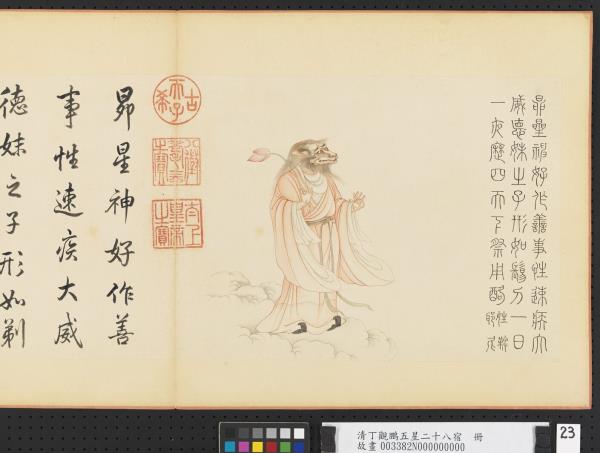 昴星神好作善事性速疾大
威德妹之子形如鬀刀一日
一夜歷四天下祭用酪姓鞞
耶尼
古希天子
八徵耄念之寶
太上皇帝之寶
昴星神好作善
事性速疾大威
德妹之子形如剃
清丁觀鵬五星二十八宿 冊
故畫 003382N000000000
23